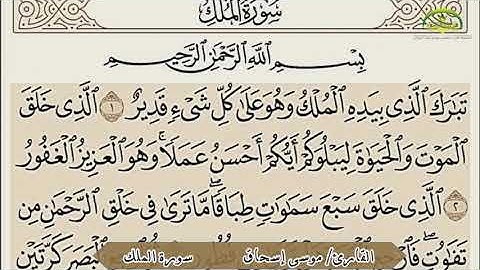 سُورَةُ الْمُلْكِ
بِسْمِ اللَّهِ الرَّحْمَٰنِ الرَّحِيمِ
تَبَارَكَ الَّذِي بِيَدِهِ الْمُلْكُ وَهُوَ عَلَىٰ كُلِّ شَيْءٍ قَدِيرٌ ١ الَّذِي خَلَقَ
الْمَوْتَ وَالْحَيَوٰةَ لِيَبْلُوَكُمْ أَيُّكُمْ أَحْسَنُ عَمَلًا ۚ وَهُوَ الْعَزِيزُ الْغَفُورُ
٢ الَّذِي خَلَقَ سَبْعَ سَمَٰوَٰتٍ طِبَاقًا ۖ مَّا تَرَىٰ فِي خَلْقِ الرَّحْمَٰنِ مِن
تَفَٰوُتٍ ۖ الْبَصَرَ كَرَّتَيْنِ
القارئ/ موسى إسحاق سورة الملك